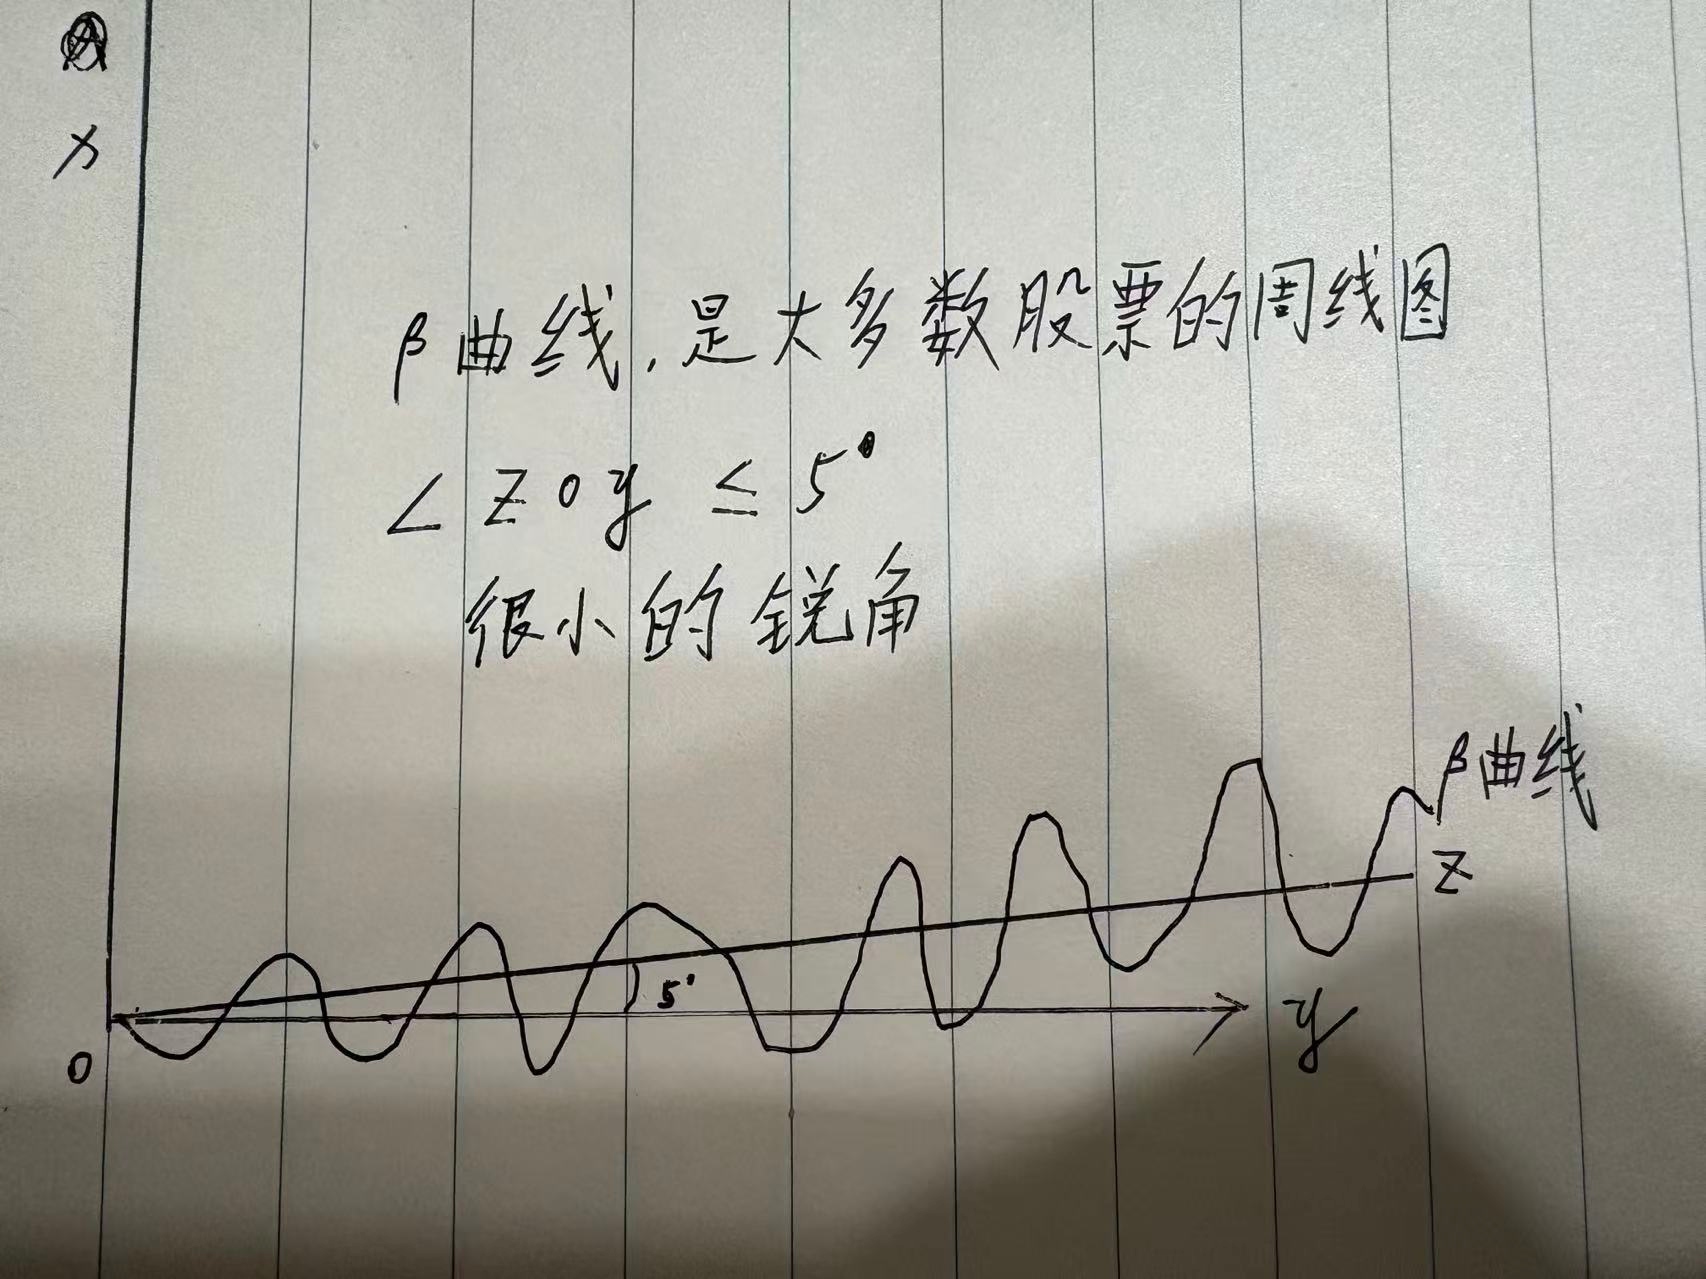 x
β曲线,是大多数股票的周线图
∠ZOy ≤ 5°
很小的锐角
β曲线
Z
5°
y
O